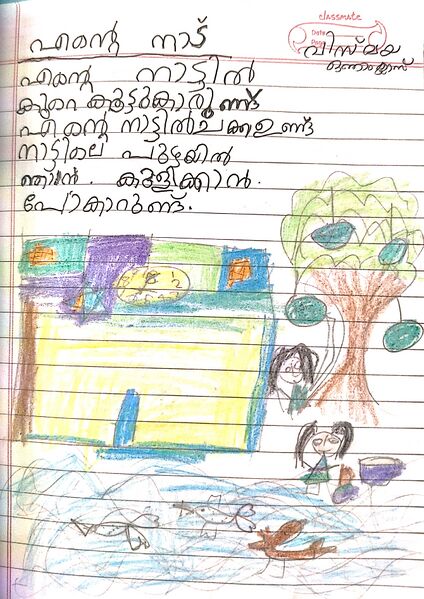 classmate
Date
Page
എന്റെ നാട്
വിസ്മയ
ഒന്നാംക്ലാസ്
എന്റെ നാട്ടിൽ
കുറെ കൂട്ടുകാരുണ്ട്
എന്റെ നാട്ടിൽ ചക്ക ഉണ്ട്
നാട്ടിലെ പുഴയിൽ
ഞാൻ. കുളിക്കാൻ.
പോകാറുണ്ട്.